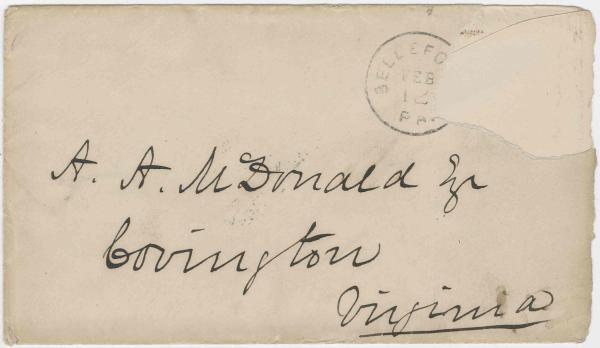 BELLEFO
FEB
PA
A. A. McDonald Esqr
Covington
Virginia